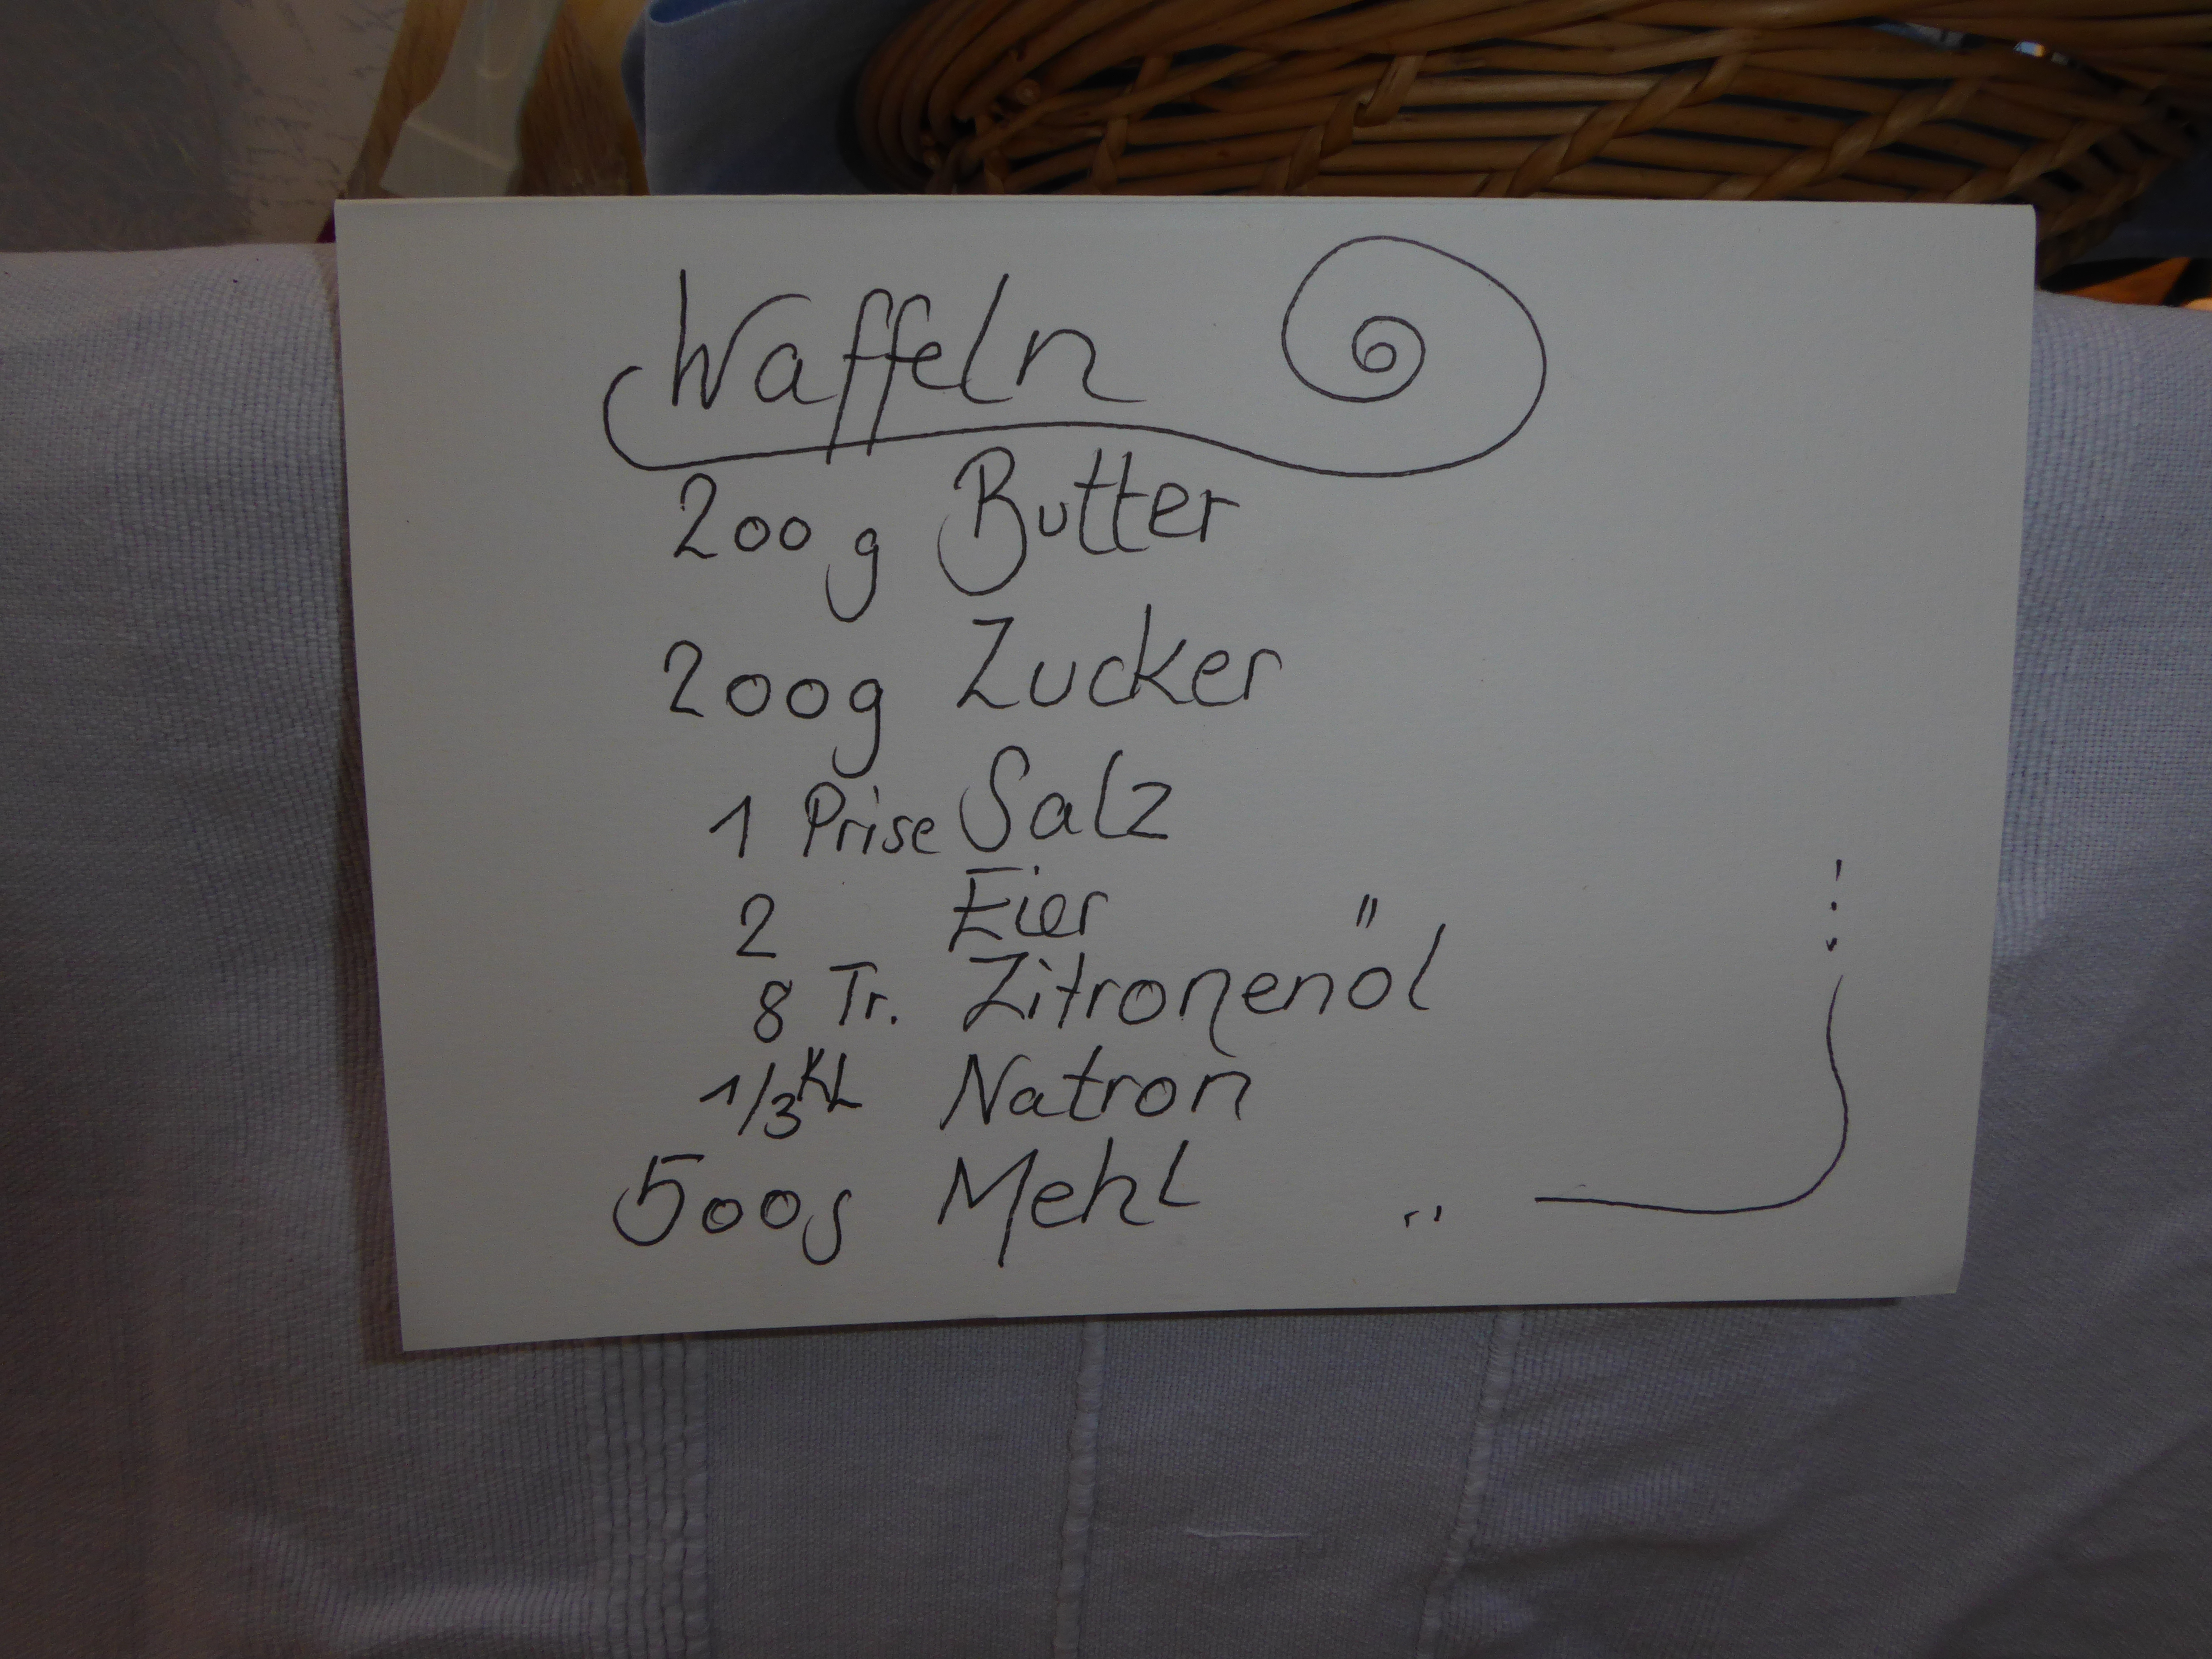 Waffeln
200 g Butter
200g Zucker
1 Prise Salz
2 Eier
8 Tr. Zitronenöl
1/3 KL Natron
500g Mehl